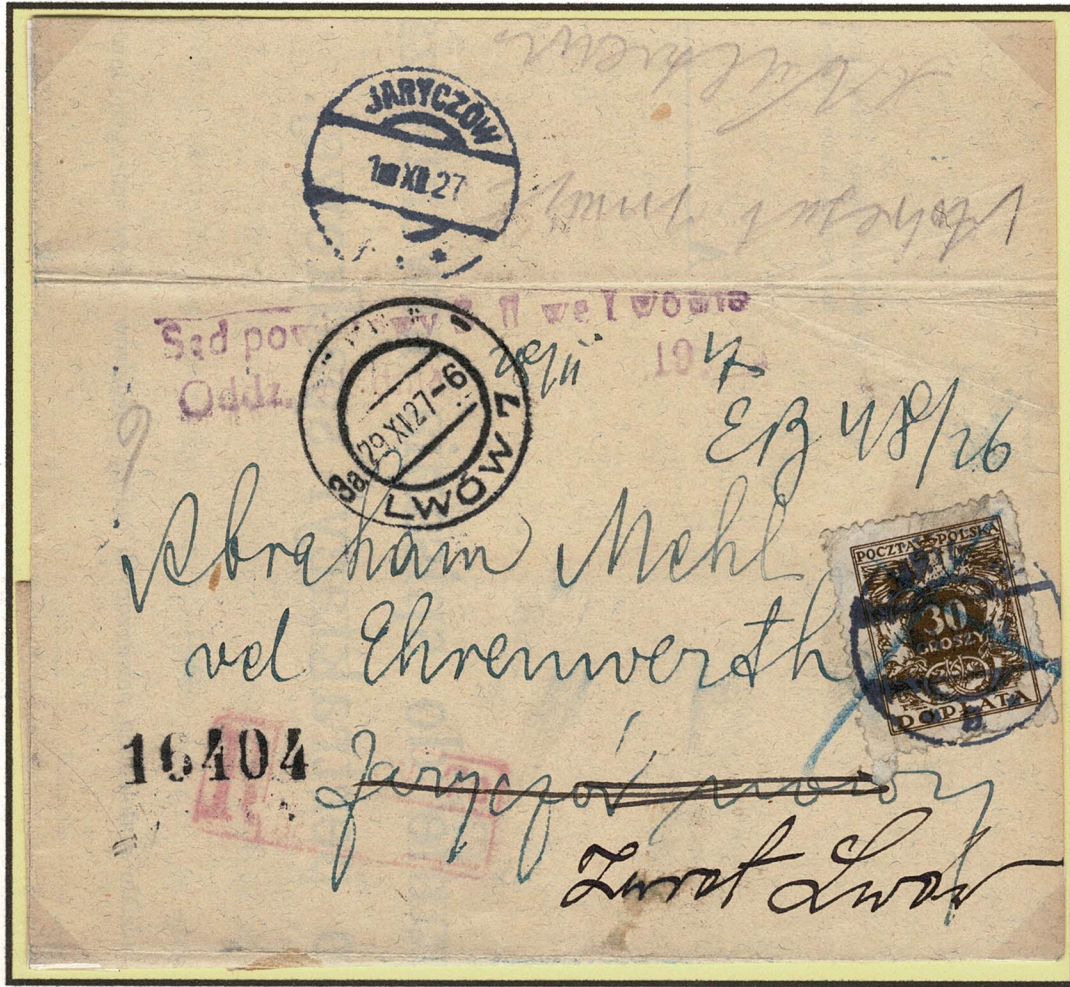 JARYCZÓW
1 XII.27
Sąd powiatowy S. II we Lwowie
Oddz.
29/11
3a 29 XI.27-6
LWÓW 2
EB 48/26
Abraham Mehl
vel Ehrenwerth
POCZTA POLSKA
30
GROSZY
DOPŁATA
16404
Jaryczów nowy
Zwrot Lwów